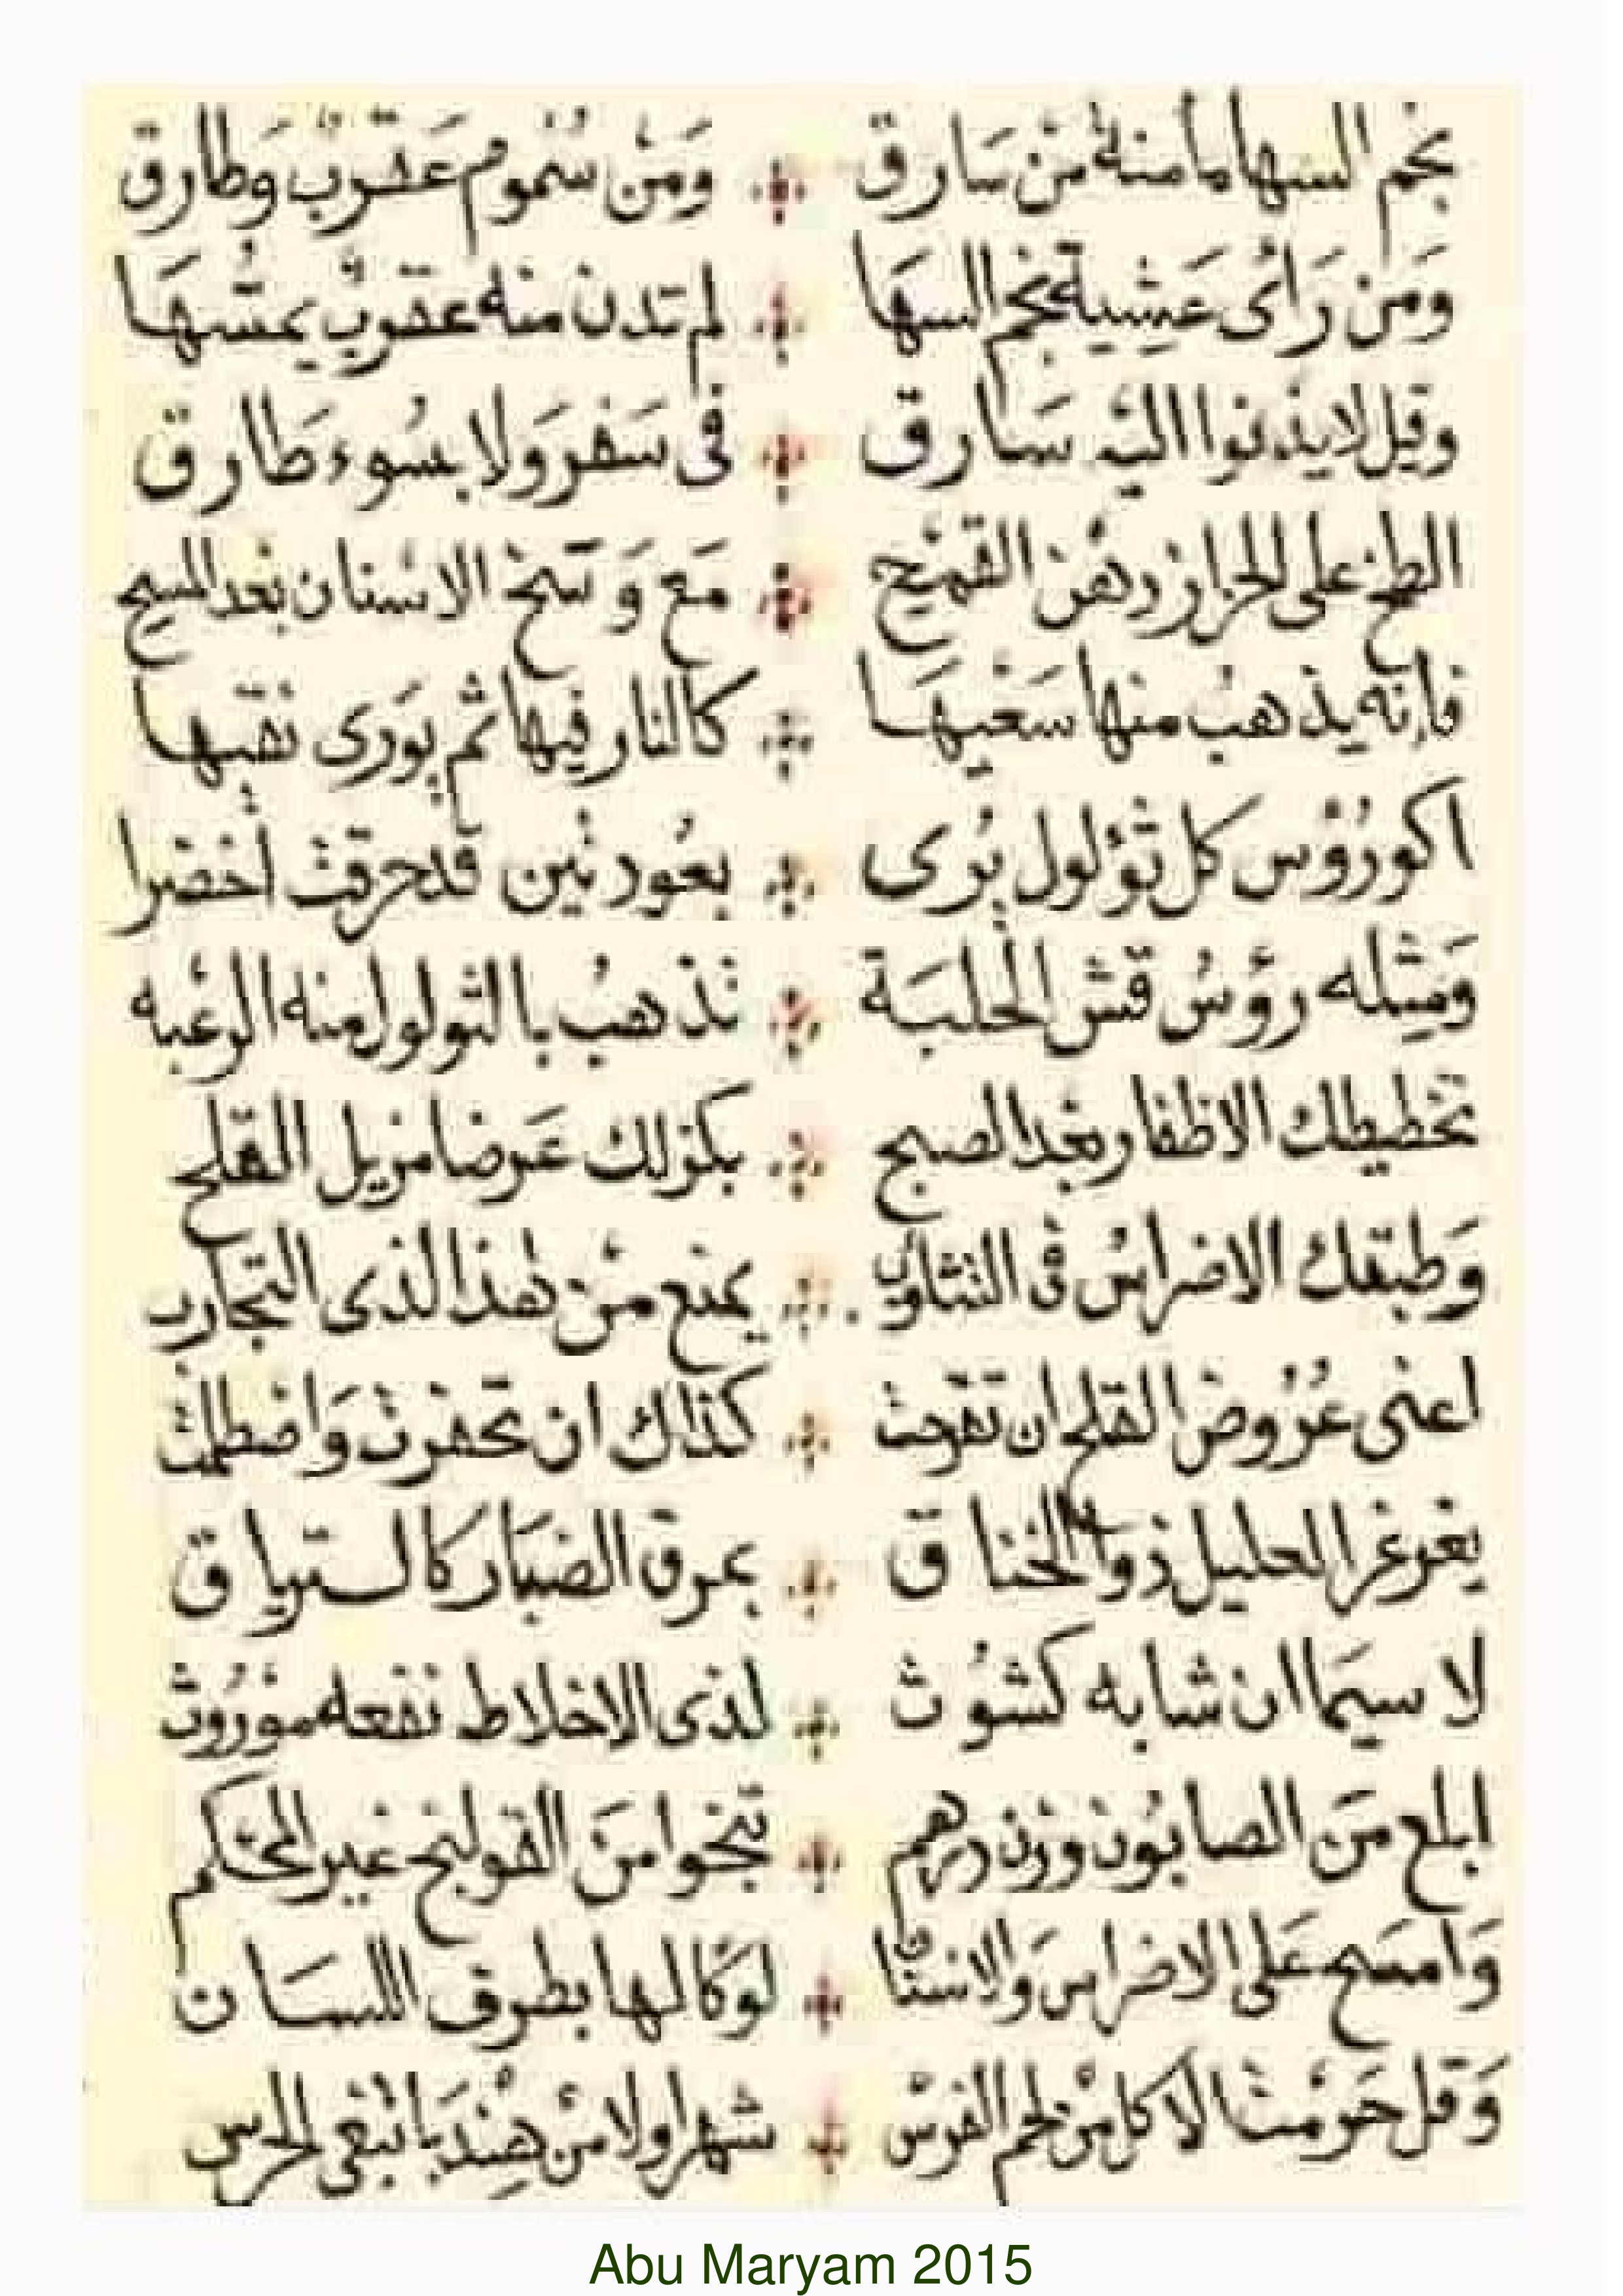 نجم السها مأمنة من سارق ومن سموم عقرب وطارق
ومن رأى عشية نجم السها لم تدن منه عقرب يمسها
وقيل لا يدنوا اليه سارق في سفر ولا بسوء طارق
الطخ على الحزاز دهن القمح مع وسخ الاسنان بعد المسح
فإنه يذهب منها سعيها كالنار فيها ثم يورى نقبها
اكورؤس كل ثؤلول يرى بعود تين قد حرقت أخضرا
ومثله رؤس قش الحلبة تذهب بالثولول منه الرغبه
تخطيطك الاظفار بعد الصبح بكزلك عرضا مزيل القلح
وطبقك الاضراس في التثاوب يمنع من هذا لذى التجارب
اعنى عروض القلح ان تقرحت كذاك ان تحفرت واضطلمت
يغرغر العليل ذو الخناق بمرق الضبار كالترياق
لا سيما ان شابه كشوث لذى الاخلاط نفعه موروث
ابلع من الصابون وزن درهم تنجوا من القولنج غير المحكم
وامسح على الاضراس والاسنان لوكالها بطرف اللسان
وقل حرمت الاكل من لحم الفرس شهرا ولا من هندبا تبغى الحرس
Abu Maryam 2015